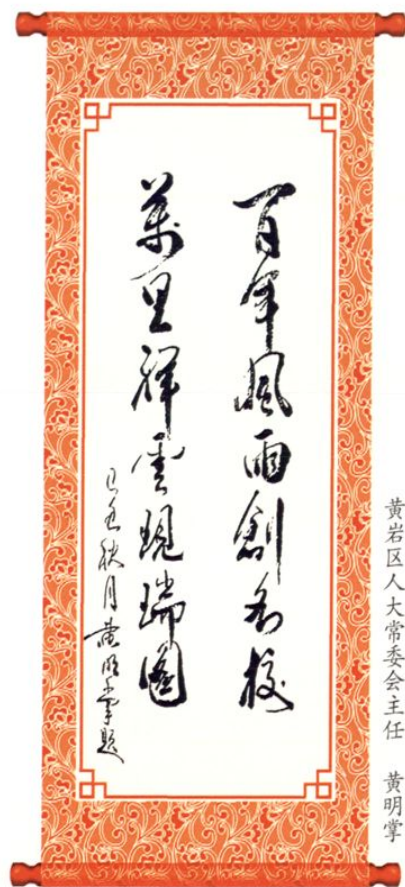 百年風雨創名校
萬里祥雲現瑞圖
己丑秋月黄明掌題
黄岩区人大常委会主任　黄明掌